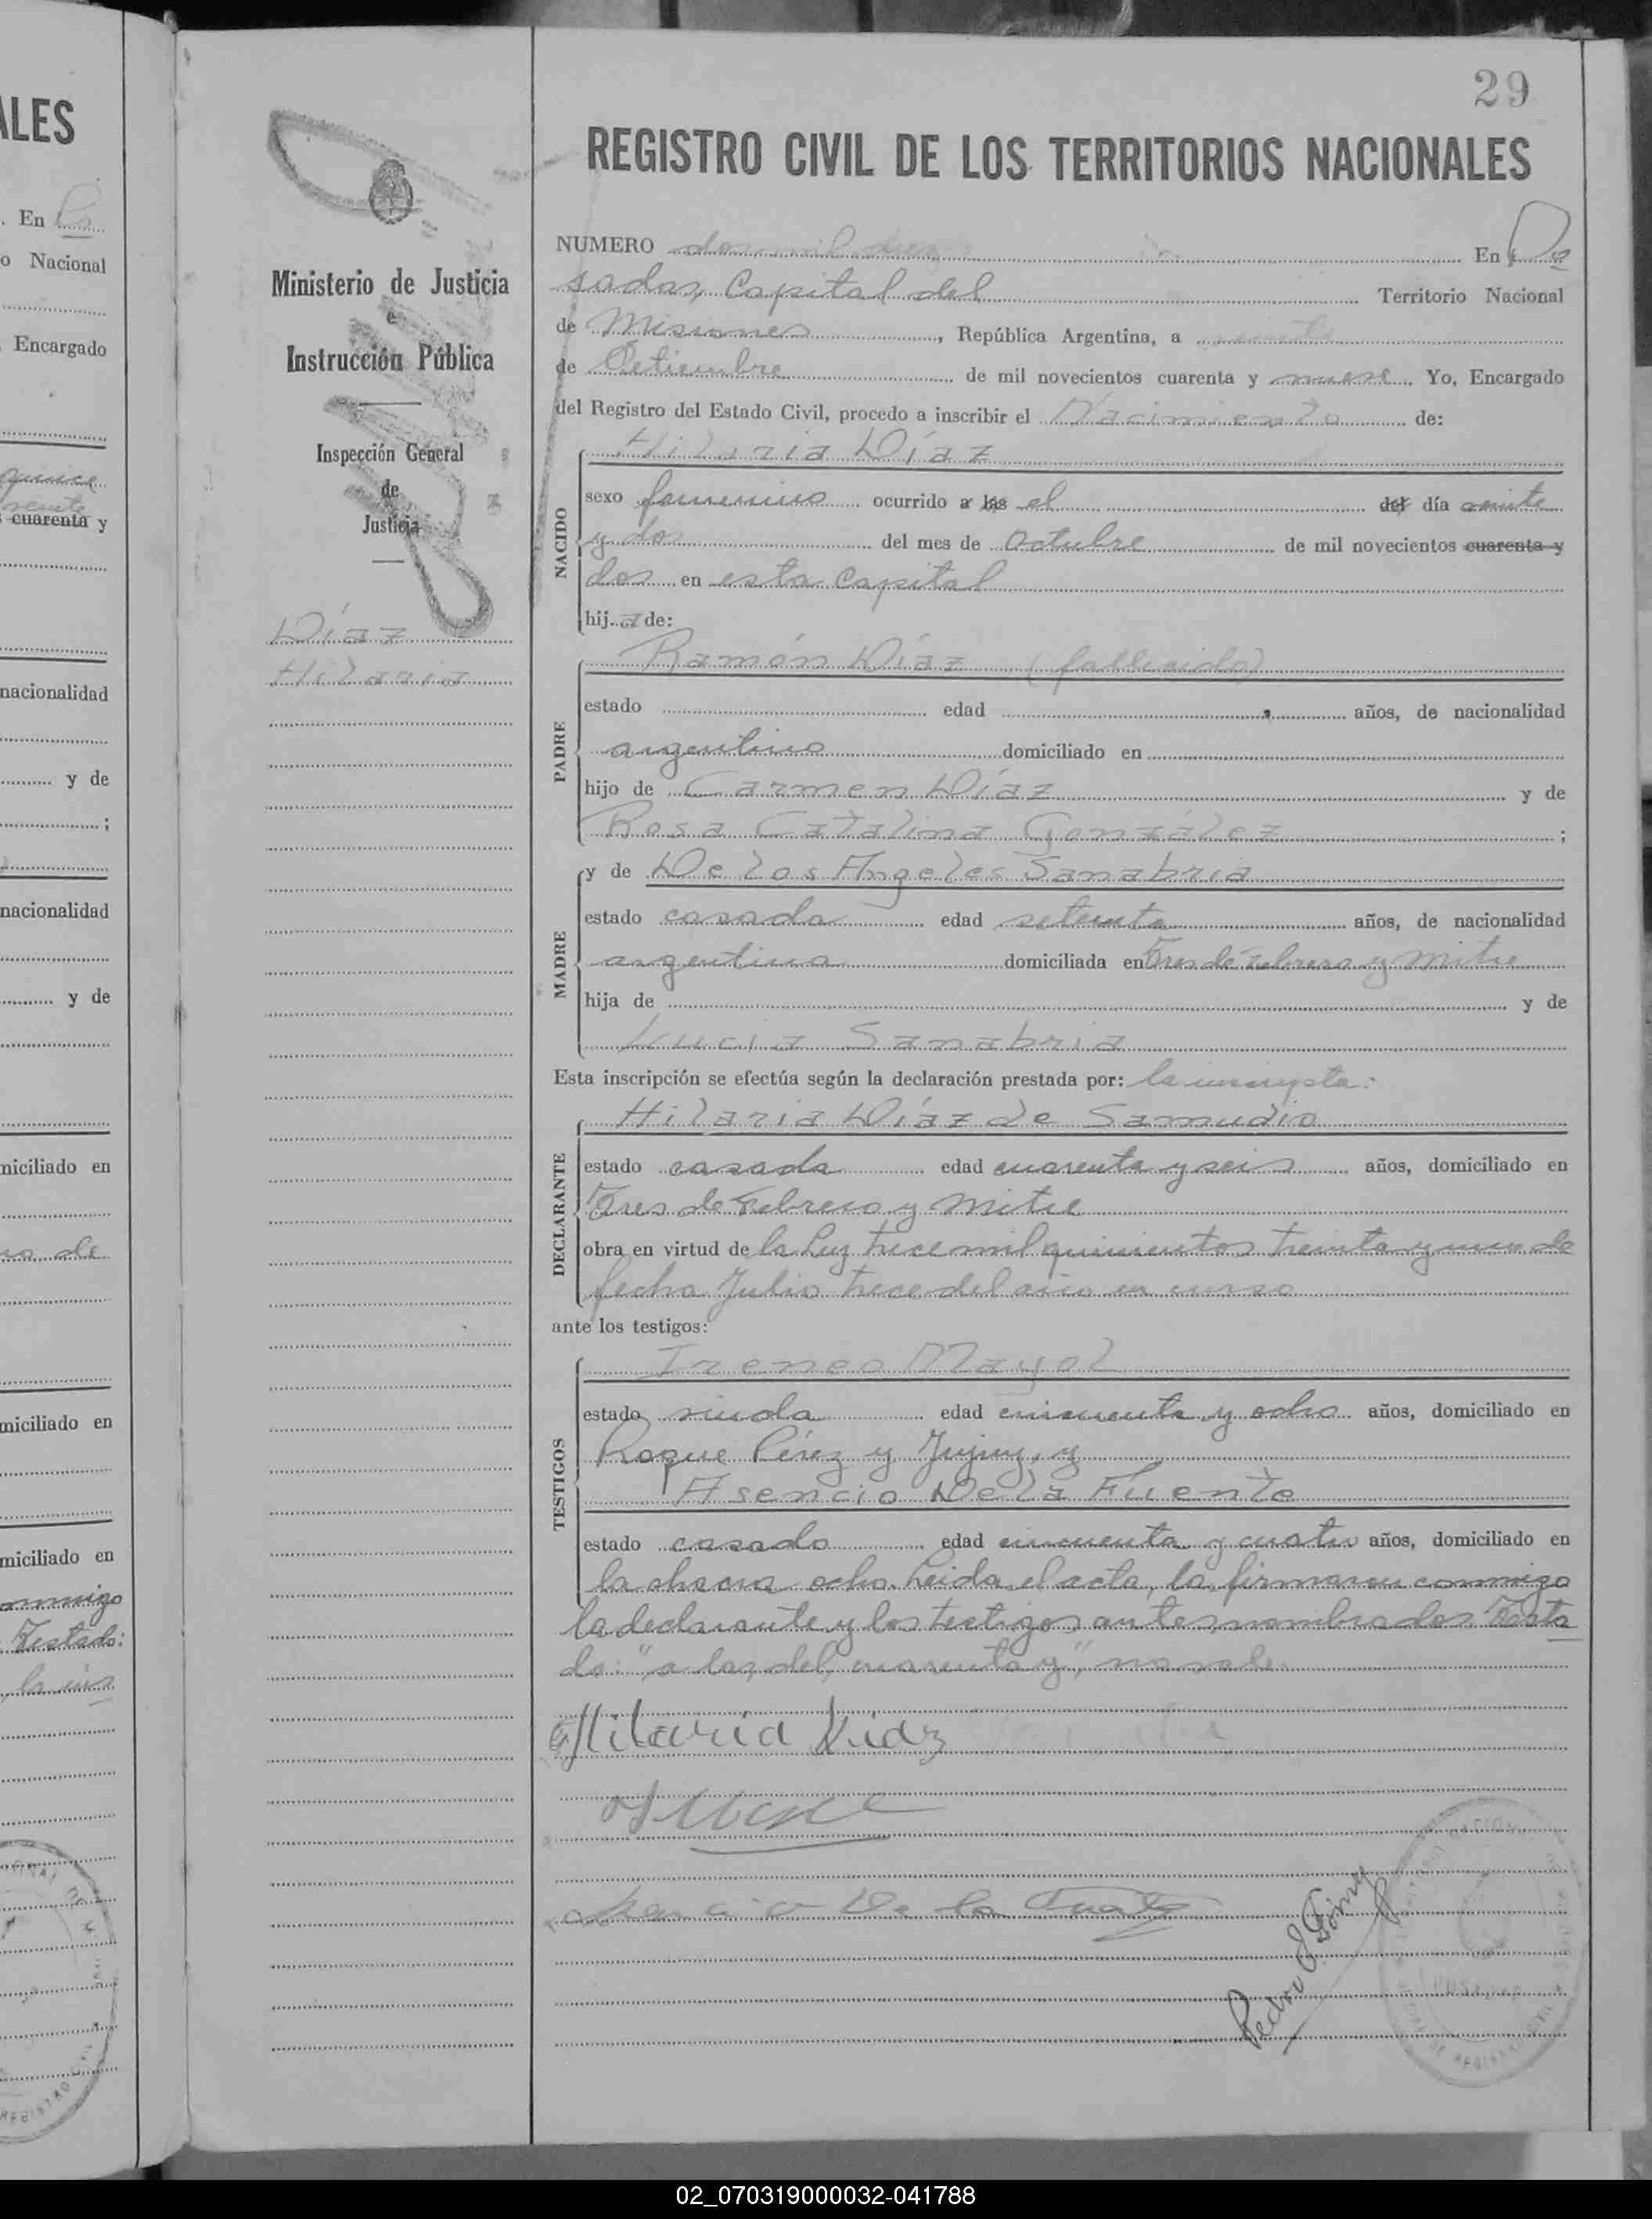 ALES
. En Po
o Nacional
, Encargado
quince
cuarenta y
nacionalidad
y de
;
nacionalidad
y de
miciliado en
miciliado en
miciliado en
conmigo
Testado:
29
REGISTRO CIVIL DE LOS TERRITORIOS NACIONALES
Ministerio de Justicia
e
Instrucción Pública
Inspección General
de
Justicia
Díaz
Hilaria
NUMERO dos mil diez En Po
sadas, Capital del Territorio Nacional
de Misiones, República Argentina, a veinte
de Setiembre de mil novecientos cuarenta y nueve. Yo, Encargado
del Registro del Estado Civil, procedo a inscribir el Nacimiento de:
Hilaria Díaz
NACIDO
sexo femenino ocurrido a las el del día veinte
y dos del mes de Octubre de mil novecientos cuarenta y
dos en esta Capital
hij a de:
PADRE
Ramón Díaz (fallecido)
estado edad años, de nacionalidad
argentino domiciliado en
hijo de Carmen Díaz y de
Rosa Catalina González ;
MADRE
y de De los Angeles Sanabria
estado casada edad setenta años, de nacionalidad
argentina domiciliada en Tres de Febrero y Mitre
hija de y de
Lucia Sanabria
Esta inscripción se efectúa según la declaración prestada por: la inscripta:
DECLARANTE
Hilaria Díaz de Samudio
estado casada edad cuarenta y seis años, domiciliado en
Tres de Febrero y Mitre
obra en virtud de la Ley trece mil quinientos treinta y uno de
fecha Julio trece del año en curso
ante los testigos:
TESTIGOS
Ireneo Mayol
estado viudo edad cincuenta y ocho años, domiciliado en
Roque Pérez y Jujuy, y
Asencio De la Fuente
estado casado edad cincuenta y cuatro años, domiciliado en
la chacra ocho. Leida el acta, la firmaron conmigo
la declarante y los testigos antes nombrados. Testa
do: "a las, del, cuarenta y", no vale.
Hilaria Diaz
Asencio De la Fuente
Pedro
02_070319000032-041788